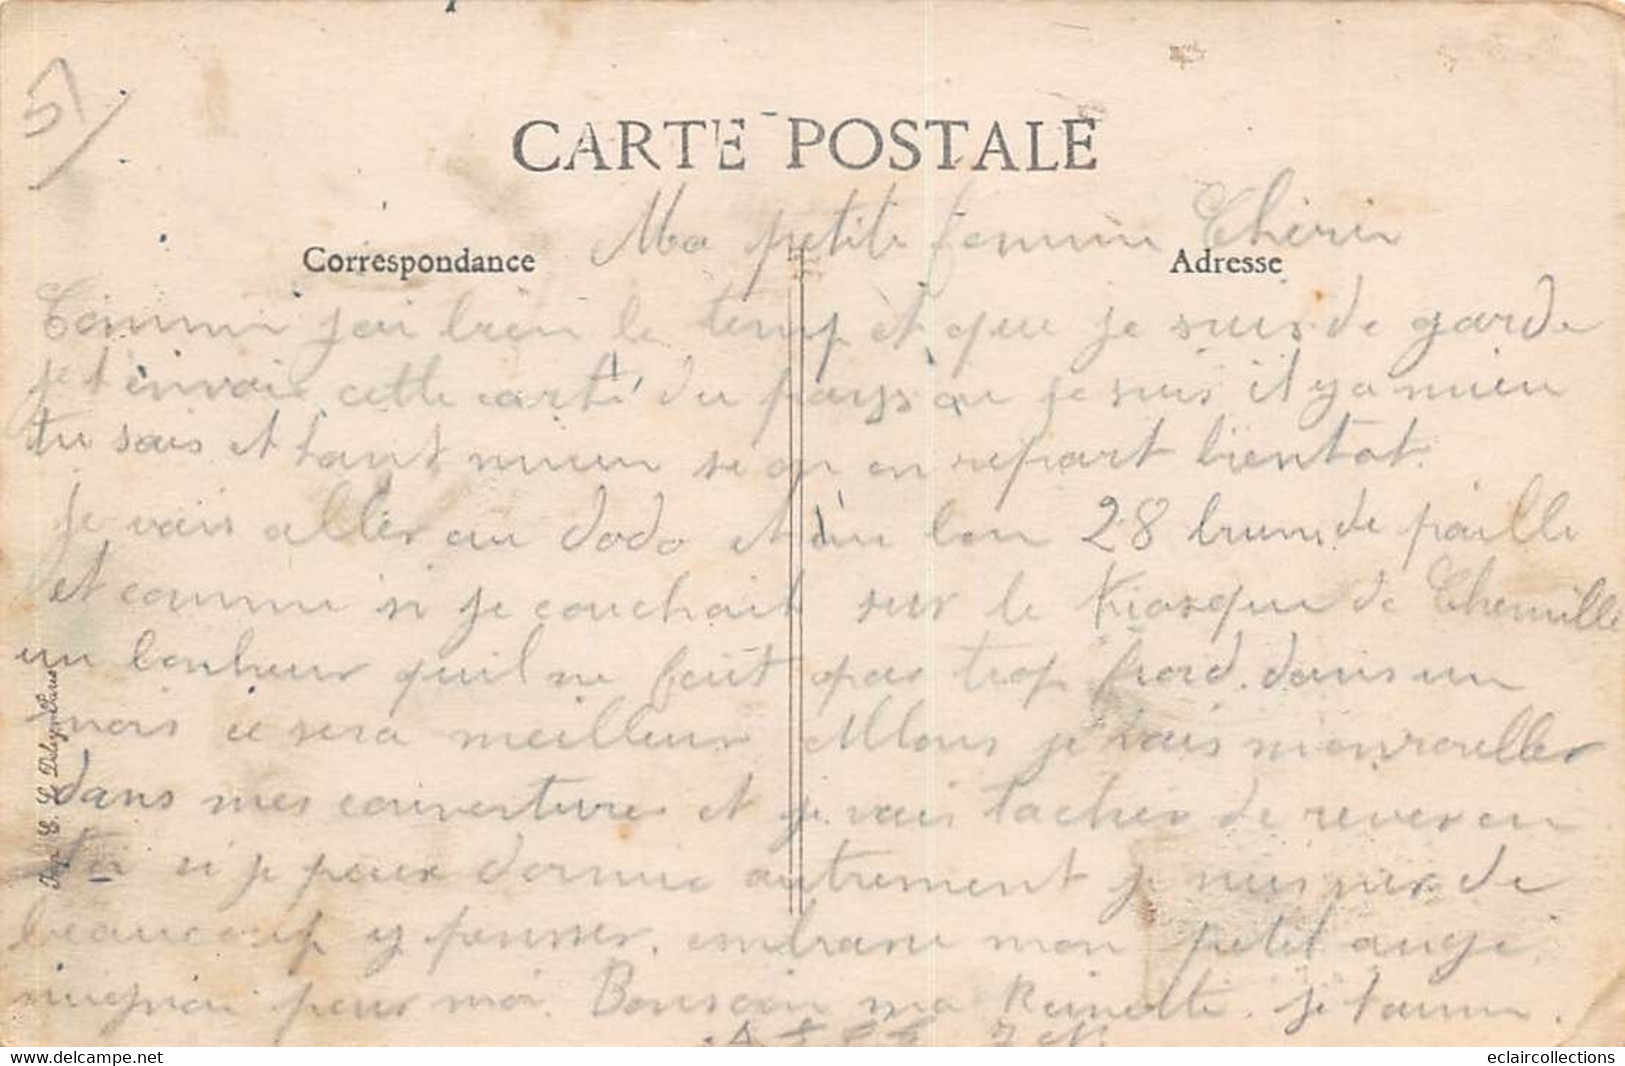 51
CARTE POSTALE
Ma petite femme Chérie
Correspondance
Adresse
Comme jai bien le temp et que je suis de garde
je t'envoie cette carte du pays ou je suis il y a mieu
tu sais et tant mieu se on en repart bientot.
Je vais aller au dodo et sur bon 28 brins de paille
et comme si je couchait sur le Kiosque de Chemillé
un bonheur quil ne fait pas trop froid. dans un
mois ce sera meilleur Allons je vais m'enrouller
dans mes couvertures et je vais tacher de rever en
toi si je peux dormir autrement je suis sur de
beaucoup y pensser. embrasse mon petit ange
mignon pour moi. Bonsoir ma Reinette. je t'aime.
Imp. E. Le Deley, Paris
eclaircollections